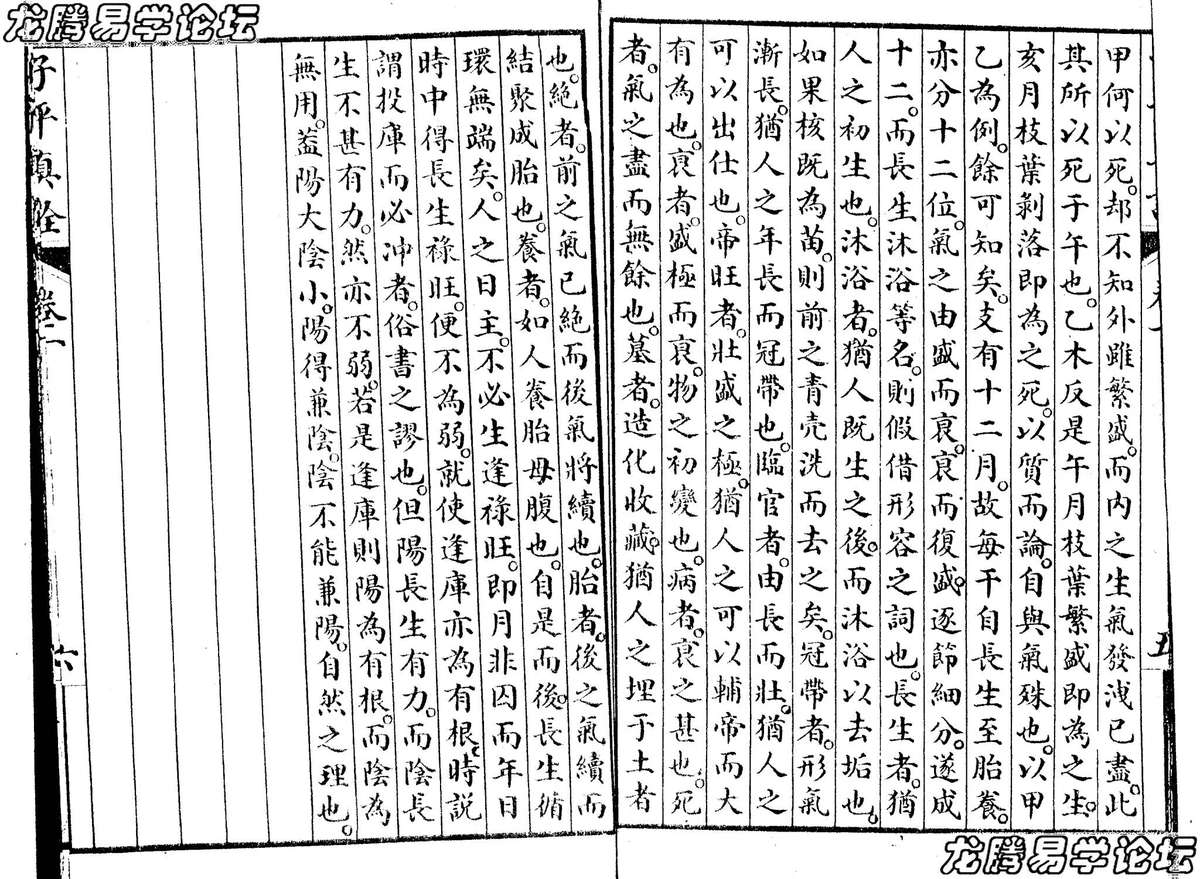 龙腾易学论坛
甲何以死。却不知外雖繁盛。而内之生氣發洩已盡。此
其所以死于午也。乙木反是午月枝葉繁盛即為之生。
亥月枝葉剥落即為之死。以質而論。自與氣殊也。以甲
乙為例。餘可知矣。支有十二月。故每干自長生至胎養。
亦分十二位。氣之由盛而衰。衰而復盛。逐節細分。遂成
十二。而長生沐浴等名。則假借形容之詞也。長生者。猶
人之初生也。沐浴者。猶人既生之後。而沐浴以去垢也。
如果核既為苗。則前之青壳洗而去之矣。冠帶者。形氣
漸長。猶人之年長而冠帶也。臨官者。由長而壯。猶人之
可以出仕也。帝旺者。壯盛之極。猶人之可以輔帝而大
有為也。衰者。盛極而衰。物之初變也。病者。衰之甚也。死
者。氣之盡而無餘也。墓者。造化收藏。猶人之埋于土者
五
也。絶者。前之氣已絶而後氣將續也。胎者。後之氣續而
結聚成胎也。養者。如人養胎母腹也。自是而後。長生循
環無端矣。人之日主。不必生逢祿旺。即月非囚而年日
時中得長生祿旺。便不為弱。就使逢庫亦為有根。時説
謂投庫而必冲者。俗書之謬也。但陽長生有力。而陰長
生不甚有力。然亦不弱。若是逢庫則陽為有根。而陰為
無用。葢陽大陰小。陽得兼陰。陰不能兼陽。自然之理也。
子平真詮 卷二 六
龙腾易学论坛